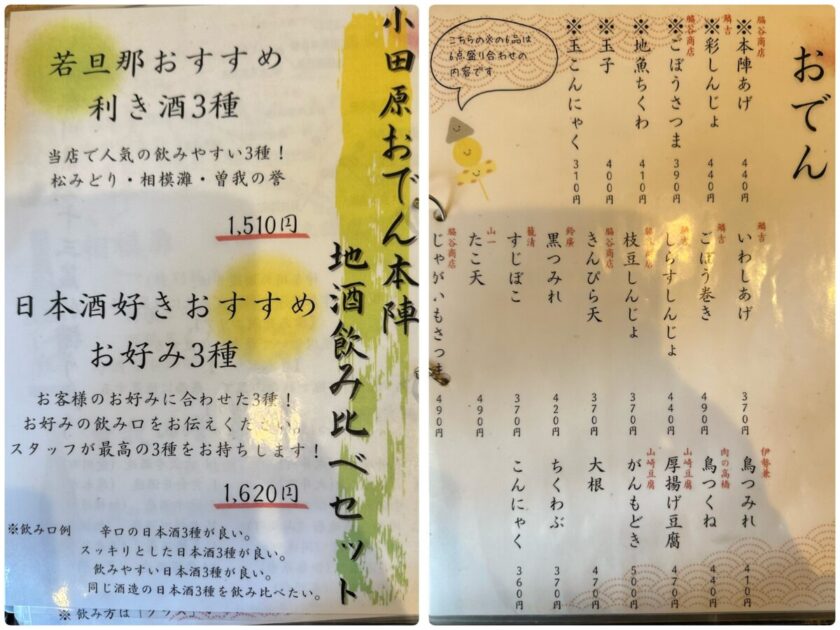 小田原おでん本陣
地酒飲み比べセット
若旦那おすすめ
利き酒3種
当店で人気の飲みやすい3種！
松みどり・相模灘・曽我の誉
1,510円
日本酒好きおすすめ
お好み3種
お客様のお好みに合わせた3種！
お好みの飲み口をお伝えください。
スタッフが最高の3種をお持ちします！
1,620円
※飲み口例 辛口の日本酒3種が良い。
スッキリとした日本酒3種が良い。
飲みやすい日本酒3種が良い。
同じ酒造の日本酒3種を飲み比べたい。
おでん
脇谷商店
※本陣あげ 440円
鱗吉
※彩しんじょ 440円
脇谷商店
※ごぼうさつま 390円
※地魚ちくわ 410円
※玉子 400円
※玉こんにゃく 310円
こちらの※の6品は
6点盛り合わせの
内容です
鱗吉
いわしあげ 370円
鱗吉
ごぼう巻き 490円
しらすしんじょ 440円
枝豆しんじょ 370円
脇谷商店
きんぴら天 370円
鈴廣
黒つみれ 420円
籠清
すじぼこ 370円
山一
たこ天 490円
脇谷商店
じゃがいもさつま 490円
伊勢兼
鳥つみれ 410円
肉の高橋
鳥つくね 440円
山崎豆腐
厚揚げ豆腐 470円
山崎豆腐
がんもどき 500円
大根 470円
ちくわぶ 370円
こんにゃく 360円